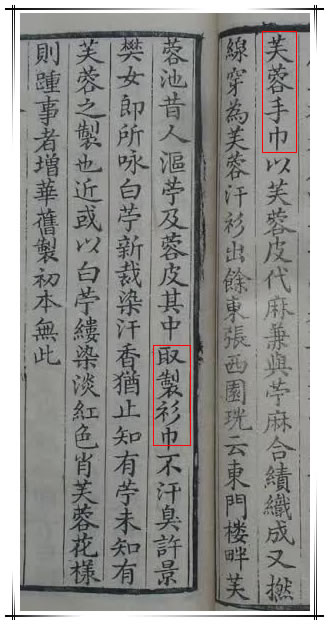 芙蓉手巾以芙蓉皮代麻兼與苧麻合績織成又撚
線穿為芙蓉汗衫出餘東張西園珖云東門楼畔芙
蓉池昔人漚苧及蓉皮其中取製衫巾不汗臭許景
樊女郎所咏白苧新裁染汗香猶止知有苧未知有
芙蓉之製也近或以白苧縷染淡紅色肖芙蓉花様
則踵事者增華舊製初本無此